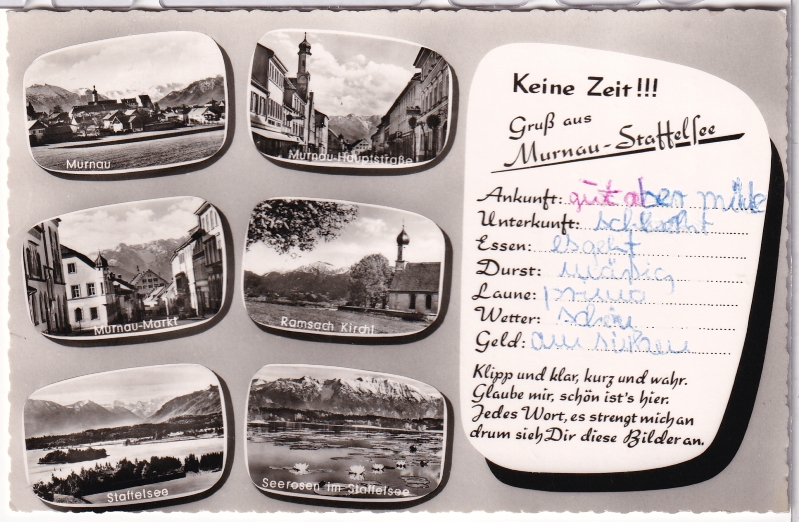 Murnau
Murnau-Hauptstraße
Murnau-Markt
Ramsach Kirchl
Staffelsee
Seerosen im Staffelsee
Keine Zeit!!!
Gruß aus
Murnau-Staffelsee
Ankunft: gut aber müde
Unterkunft: schlecht
Essen: es geht
Durst: mäsig
Laune: prima
Wetter: schön
Geld: am
Klipp und klar, kurz und wahr.
Glaube mir, schön ist's hier.
Jedes Wort, es strengt mich an
drum sieh Dir diese Bilder an.